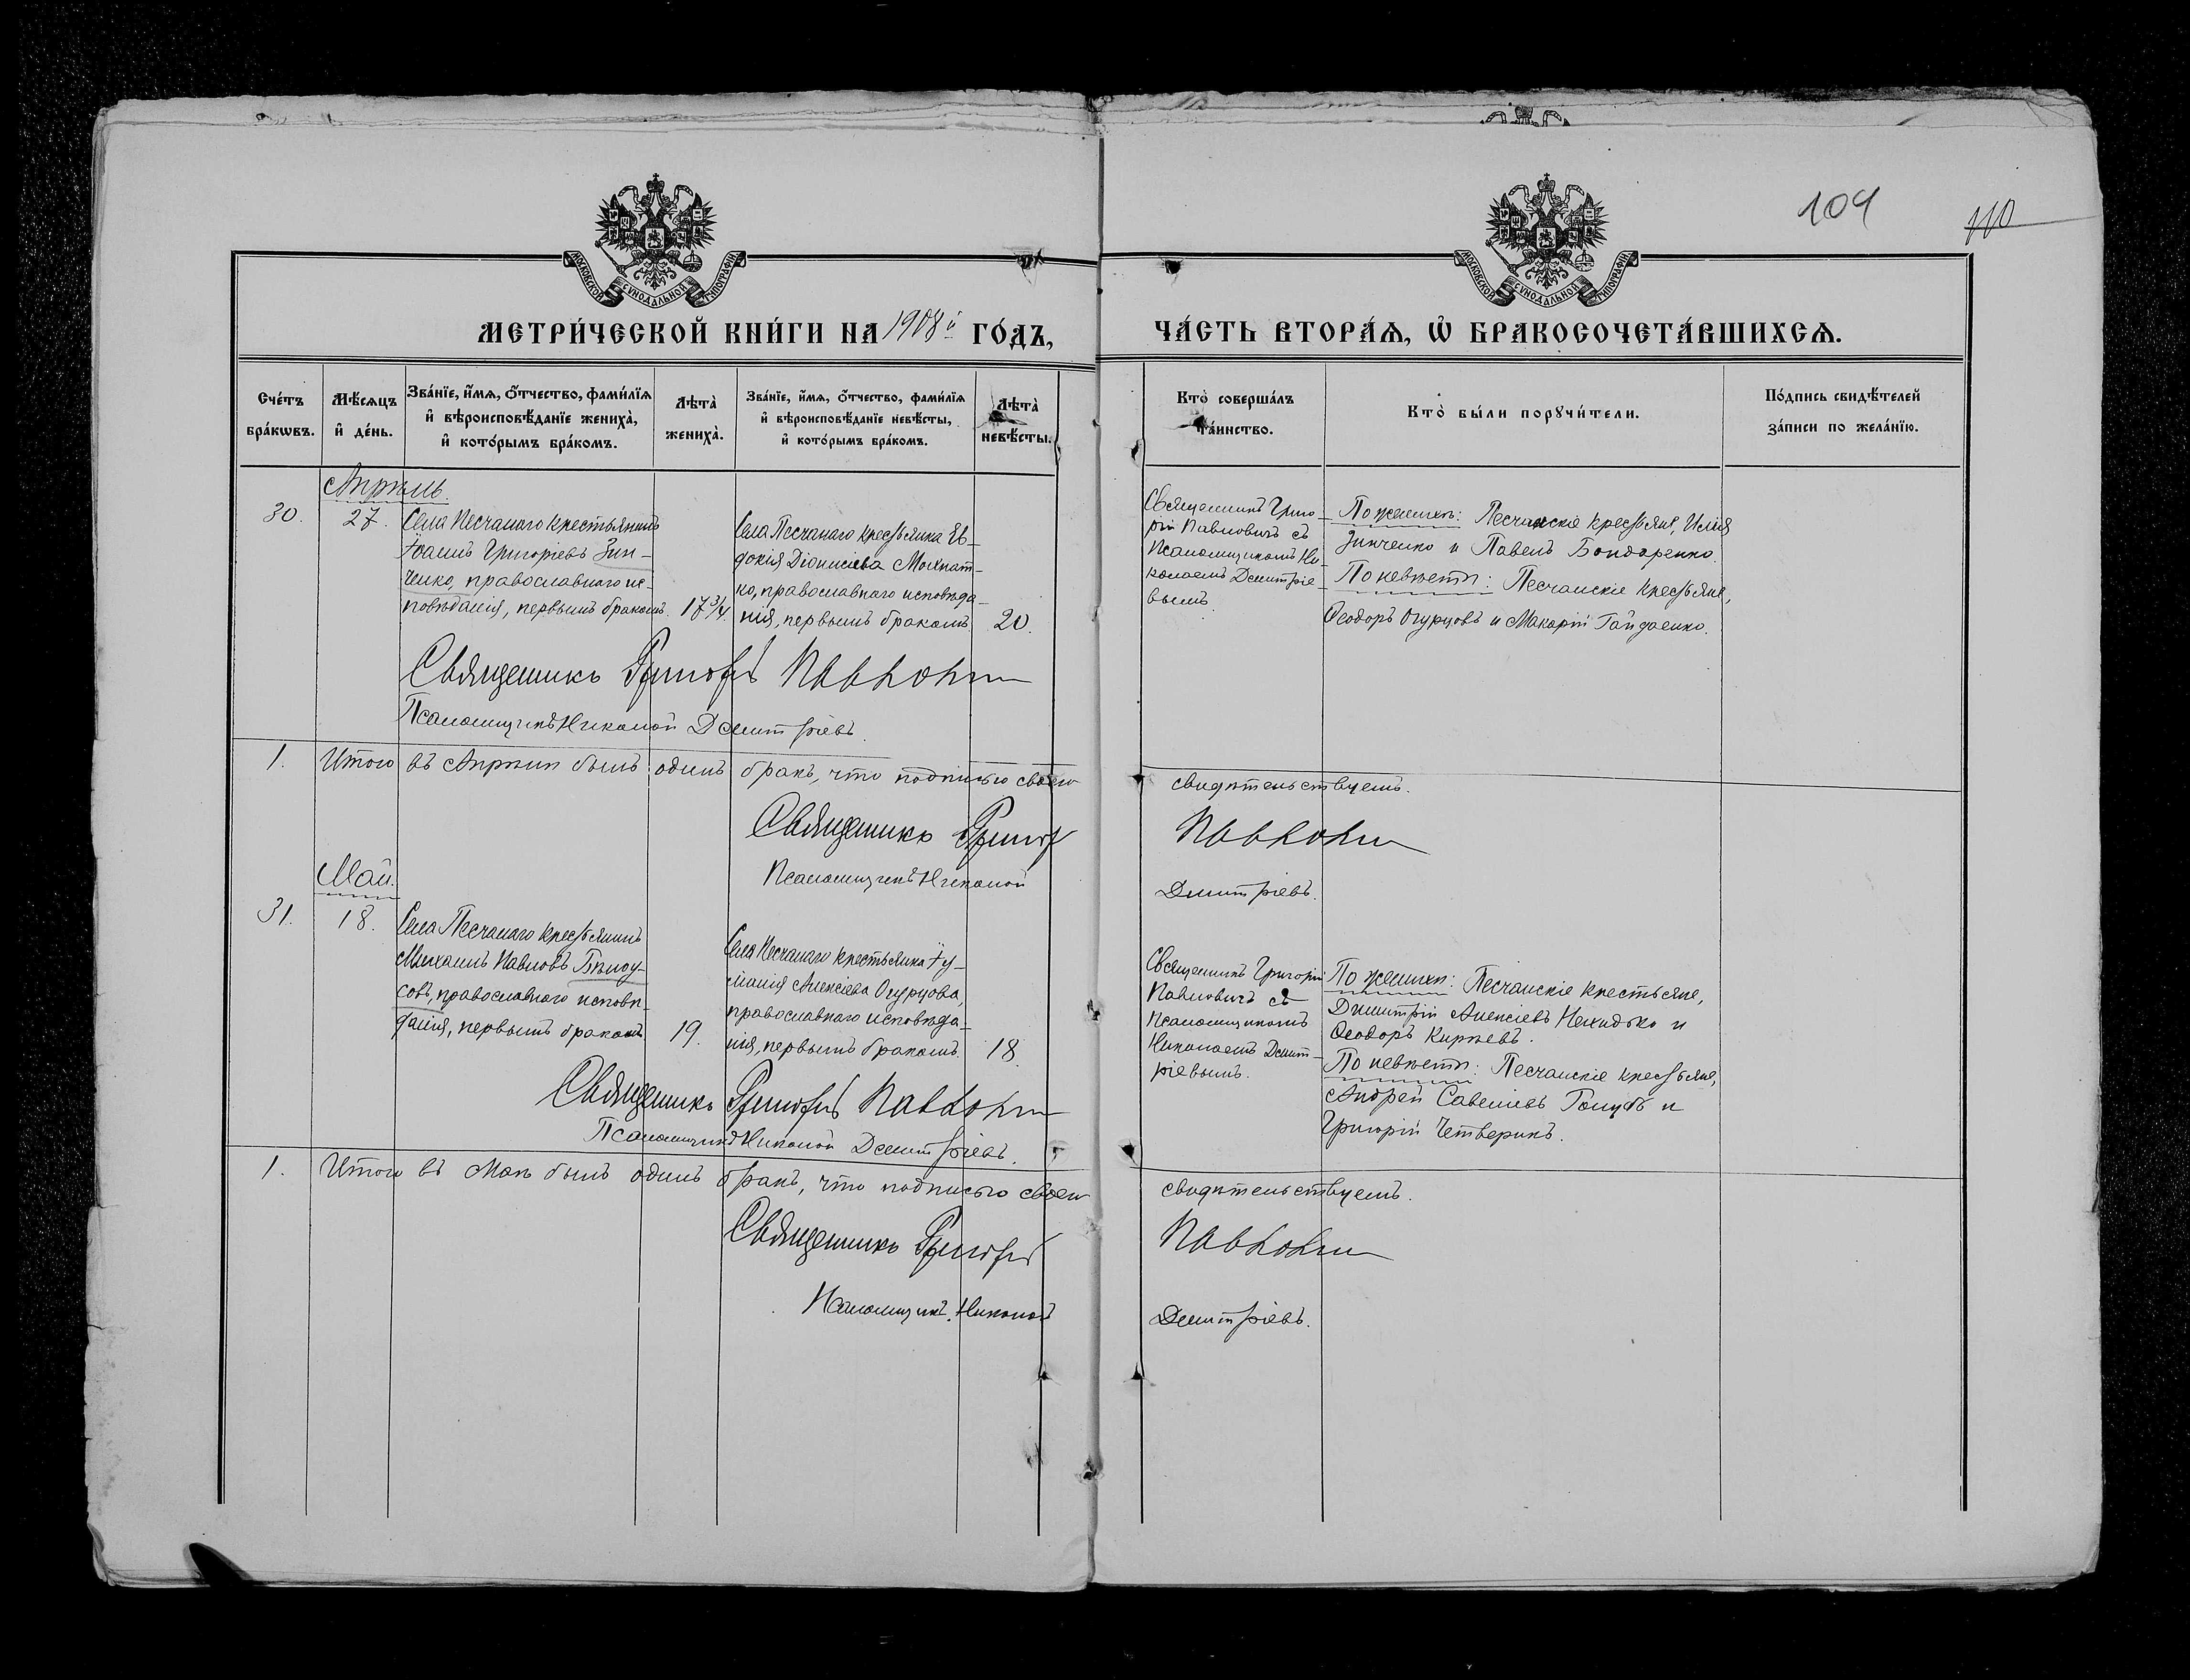 109
110
МОСКОВСКОЙ СУНОДАЛЬНОЙ ТИПОГРАФІИ
МОСКОВСКОЙ СУНОДАЛЬНОЙ ТИПОГРАФІИ
МЕТРИ́ЧЕСКОЙ КНИ́ГИ НА 1908й ГО́ДЪ,
ЧА́СТЬ ВТОРА́Ѧ, Ѽ БРАКОСОЧЕТА́ВШИХСѦ.
Сче́тъ бра́кѡвъ.
Мѣ́сѧцъ и҆ де́нь.
Зва́нїе, и҆́мѧ, ѻ҆́тчество, фами́лїѧ
и҆ вѣроисповѣ́данїе жениха̀,
и҆ кото́рымъ бра́комъ.
Лѣта̀ жениха̀.
Зва́нїе, и҆́мѧ, ѻ҆́тчество, фами́лїѧ
и҆ вѣроисповѣ́данїе невѣ́сты,
и҆ кото́рымъ бра́комъ.
Лѣта̀ невѣ́сты.
Кто̀ соверша́лъ
та́инство.
Кто̀ бы́ли порꙋчи́тели.
По́дпись свидѣ́телей
за́писи по жела́нїю.
Апрѣль.
30.
27.
Села Песчанаго крестьянинъ
Іоаннъ Григоріевъ Зин-
ченко, православнаго ис-
повѣданія, первымъ бракомъ.
17 3/4.
Села Песчанаго крестьянка Ев-
докія Діонисіева Мохнат-
ко, православнаго исповѣда-
нія, первымъ бракомъ.
20.
Священникъ Григо-
рій Павловичъ съ
Псаломщикомъ Ни-
колаемъ Дмитріе-
вымъ.
По женихѣ: Песчанскіе крестьяне, Илія
Зинченко и Павелъ Бондаренко.
По невѣстѣ: Песчанскіе крестьяне,
Ѳеодоръ Огурцовъ и Макарій Гайдаенко.
Священникъ Григорій Павловичъ
Псаломщикъ Николай Дмитріевъ.
1. Итого въ Апрѣлѣ былъ одинъ бракъ, что подписью своею
свидѣтельствуемъ.
Священникъ Григорій
Павловичъ
Псаломщикъ Николай
Дмитріевъ.
Май.
31.
18.
Села Песчанаго крестьянинъ
Михаилъ Павловъ Бѣлоу-
совъ, православнаго исповѣ-
данія, первымъ бракомъ
19.
Села Песчанаго крестьянка Іу-
ліанія Алексіева Огурцова,
православнаго исповѣда-
нія, первымъ бракомъ.
18.
Священникъ Григорій
Павловичъ съ
Псаломщикомъ
Николаемъ Дмит-
ріевымъ.
По женихѣ: Песчанскіе крестьяне,
Димитрій Алексіевъ и
Ѳеодоръ Кирѣевъ.
По невѣстѣ: Песчанскіе крестьяне,
Андрей Савеліевъ Голубъ и
Григорій Четверикъ.
Священникъ Григорій Павловичъ
Псаломщикъ Николай Дмитріевъ.
1. Итого въ Маѣ былъ одинъ бракъ, что подписью своею
свидѣтельствуемъ.
Священникъ Григорій
Павловичъ
Псаломщикъ Николай
Дмитріевъ.